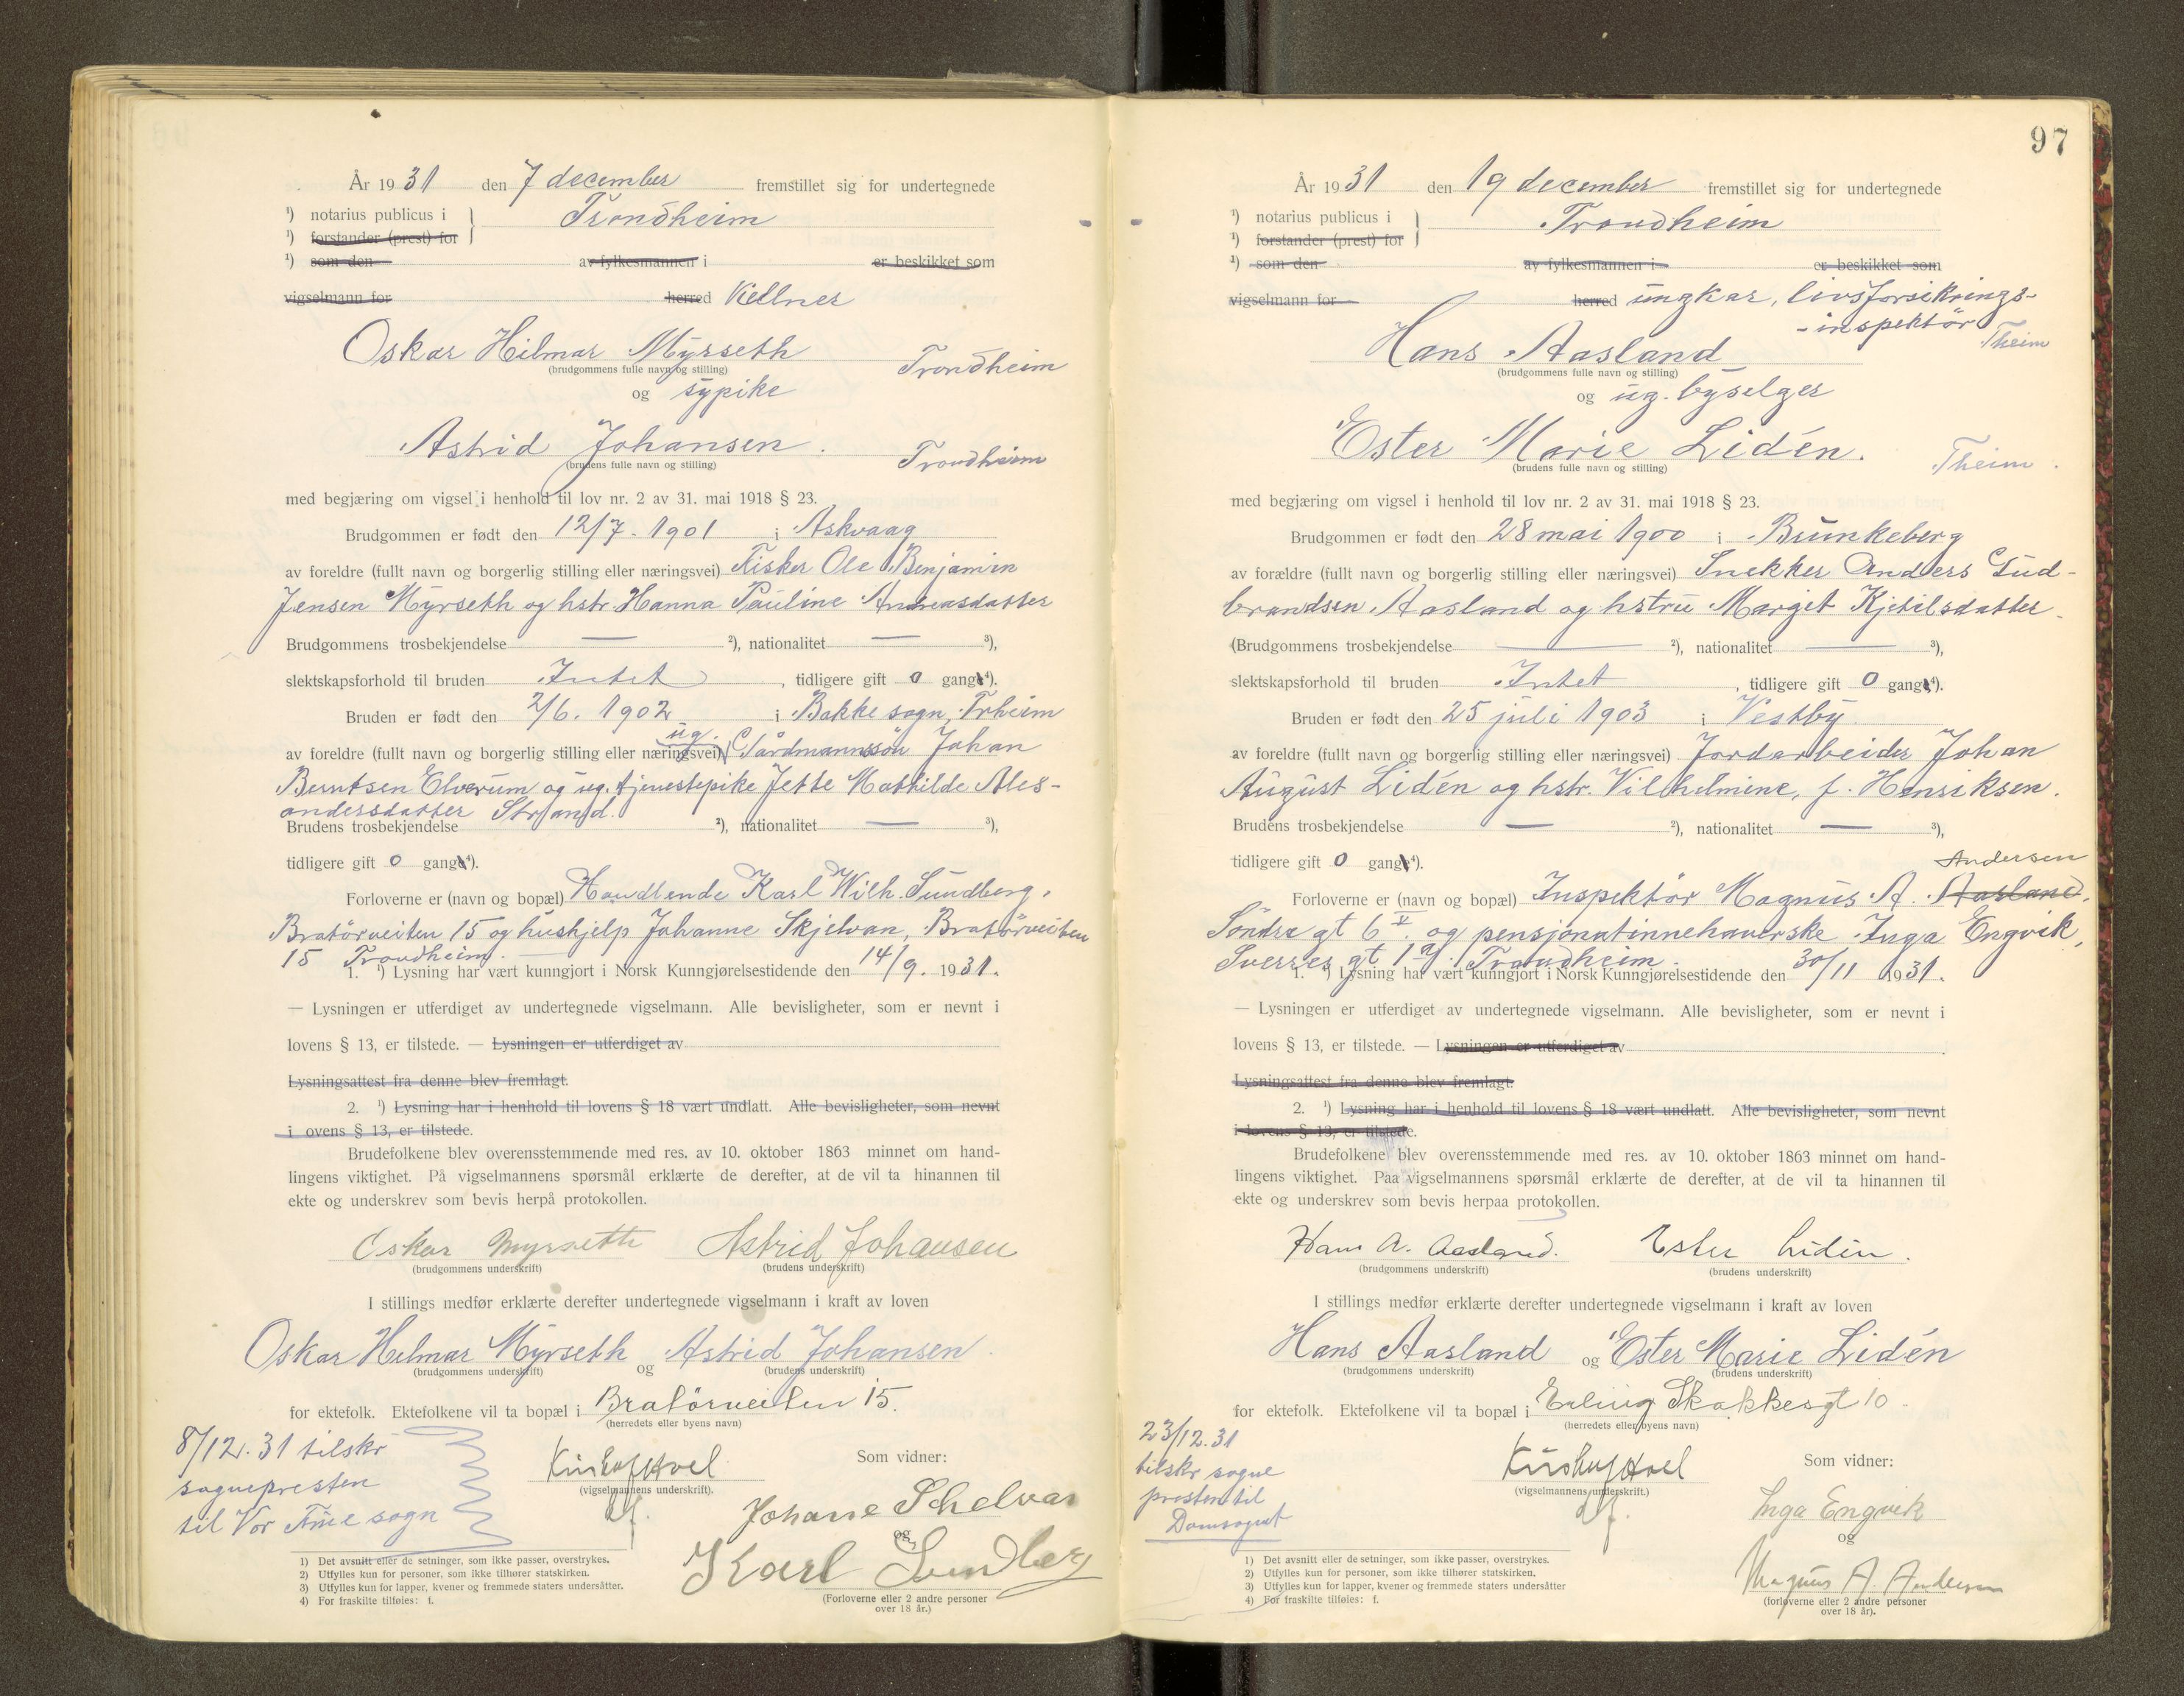 År 1931 den 7 december fremstillet sig for undertegnede
¹) notarius publicus i Trondheim
¹) forstander (prest) for
¹) som den av fylkesmannen i er beskikket som
vigselmann for herred Kellner
Oskar Hilmar Myrseth Trondheim
(brudgommens fulle navn og stilling)
og sypike
Astrid Johansen. Trondheim
(brudens fulle navn og stilling)
med begjæring om vigsel i henhold til lov nr. 2 av 31. mai 1918 § 23.
Brudgommen er født den 12/7. 1901 i Askvaag
av foreldre (fullt navn og borgerlig stilling eller næringsvei) Fisker Ole Benjamin
Jensen Myrseth og hstr. Hanna Pauline Andreasdatter
Brudgommens trosbekjendelse — ²), nationalitet — ³),
slektskapsforhold til bruden Intet, tidligere gift 0 gange⁴).
Bruden er født den 2/6. 1902 i Bakke sogn, Trheim
av foreldre (fullt navn og borgerlig stilling eller næringsvei) ug. Gårdmannssön Johan
Berntsen Elverum og ug. tjenestepike Jette Mathilde Ales-
andersdatter Strand.
Brudens trosbekjendelse ²), nationalitet — ³),
tidligere gift 0 gange⁴).
Forloverne er (navn og bopæl) Handlende Karl Wilh. Sundberg,
Bratörveiten 15 og hushjelp Johanne Skjelvan, Bratörveiten
15 Trondheim. —
1. ¹) Lysning har vært kunngjort i Norsk Kunngjørelsestidende den 14/9. 1931.
— Lysningen er utferdiget av undertegnede vigselmann. Alle bevisligheter, som er nevnt i
lovens § 13, er tilstede. — Lysningen er utferdiget av
Lysningsattest fra denne blev fremlagt.
2. ¹) Lysning har i henhold til lovens § 18 vært undlatt. Alle bevisligheter, som nevnt
i ovens § 13, er tilstede.
Brudefolkene blev overensstemmende med res. av 10. oktober 1863 minnet om hand-
lingens viktighet. På vigselmannens spørsmål erklærte de derefter, at de vil ta hinannen til
ekte og underskrev som bevis herpå protokollen.
Oskar Myrseth Astrid Johansen
(brudgommens underskrift) (brudens underskrift)
I stillings medfør erklærte derefter undertegnede vigselmann i kraft av loven
Oskar Hilmar Myrseth og Astrid Johansen
(brudgommens underskrift) (brudens underskrift)
for ektefolk. Ektefolkene vil ta bopæl i Bratörveiten 15.
(herredets eller byens navn)
8/12. 31 tilskr
sognepresten
til Vor Frue sogn
(vigselmannens underskrift).
Som vidner:
Johanne Schelvan
og
Karl Sundberg
(Forloverne eller 2 andre personer
over 18 år.)
1) Det avsnitt eller de setninger, som ikke passer, overstrykes.
2) Utfylles kun for personer, som ikke tilhører statskirken.
3) Utfylles kun for lapper, kvener og fremmede staters undersåtter.
4) For fraskilte tilføies: f.
97
År 1931 den 19 december fremstillet sig for undertegnede
¹) notarius publicus i Trondheim
¹) forstander (prest) for
¹) som den av fylkesmannen i er beskikket som
vigselmann for herred ungkar, livsforsikrings-
-inspektör
Hans Aasland Theim
(brudgommens fulle navn og stilling)
og ug. byselger
Ester Marie Lidén. Theim.
(brudens fulle navn og stilling)
med begjæring om vigsel i henhold til lov nr. 2 av 31. mai 1918 § 23.
Brudgommen er født den 28 mai 1900 i Brunkeberg
av forældre (fullt navn og borgerlig stilling eller næringsvei) Snekker Anders Gud-
brandsen Aasland og hstru Margit Kjetilsdatter
(Brudgommens trosbekjendelse — ²), nationalitet — ³),
slektskapsforhold til bruden Intet, tidligere gift 0 gange⁴).
Bruden er født den 25 juli 1903 i Vestby
av foreldre (fullt navn og borgerlig stilling eller næringsvei) Jordarbeider Johan
August Lidén og hstr. Vilhelmine, f. Henriksen.
Brudens trosbekjendelse — ²), nationalitet — ³),
tidligere gift 0 gange⁴).
Andersen
Forloverne er (navn og bopæl) Inspektör Magnus A. Aasland,
Söndre gt 6 V. og pensjonatinnehaverske Inga Engvik,
Sverres gt 1 Trondheim.
1. ¹) Lysning har vært kunngjort i Norsk Kunngjørelsestidende den 30/11 1931.
— Lysningen er utferdiget av undertegnede vigselmann. Alle bevisligheter, som er nevnt i
lovens § 13, er tilstede. — Lysningen er utferdiget av
Lysningsattest fra denne blev fremlagt.
2. ¹) Lysning har i henhold til lovens § 18 vært undlatt. Alle bevisligheter, som nevnt
i lovens § 13, er tilstede.
Brudefolkene blev overensstemmende med res. av 10. oktober 1863 minnet om hand-
lingens viktighet. Paa vigselmannens spørsmål erklærte de derefter, at de vil ta hinannen til
ekte og underskrev som bevis herpaa protokollen.
Hans A. Aasland. Ester Lidén.
(brudgommens underskrift) (brudens underskrift)
I stillings medfør erklærte derefter undertegnede vigselmann i kraft av loven
Hans Aasland og Ester Marie Lidén
(brudgommens underskrift) (brudens underskrift)
for ektefolk. Ektefolkene vil ta bopæl i Erling Skakkesgt 10
(herredets eller byens navn)
23/12. 31
tilskr sogne
presten til
Domsognet
(vigselmannens underskrift.)
Som vidner:
Inga Engvik
og
Magnus A. Andersen
(forloverne eller 2 andre personer
over 18 år).
1) Det avsnitt eller de setninger, som ikke passer, overstrykes.
2) Utfylles kun for personer, som ikke tilhører statskirken.
3) Utfylles kun for lapper, kvener og fremmede staters undersåtter
4) For fraskilte tilføies: f.